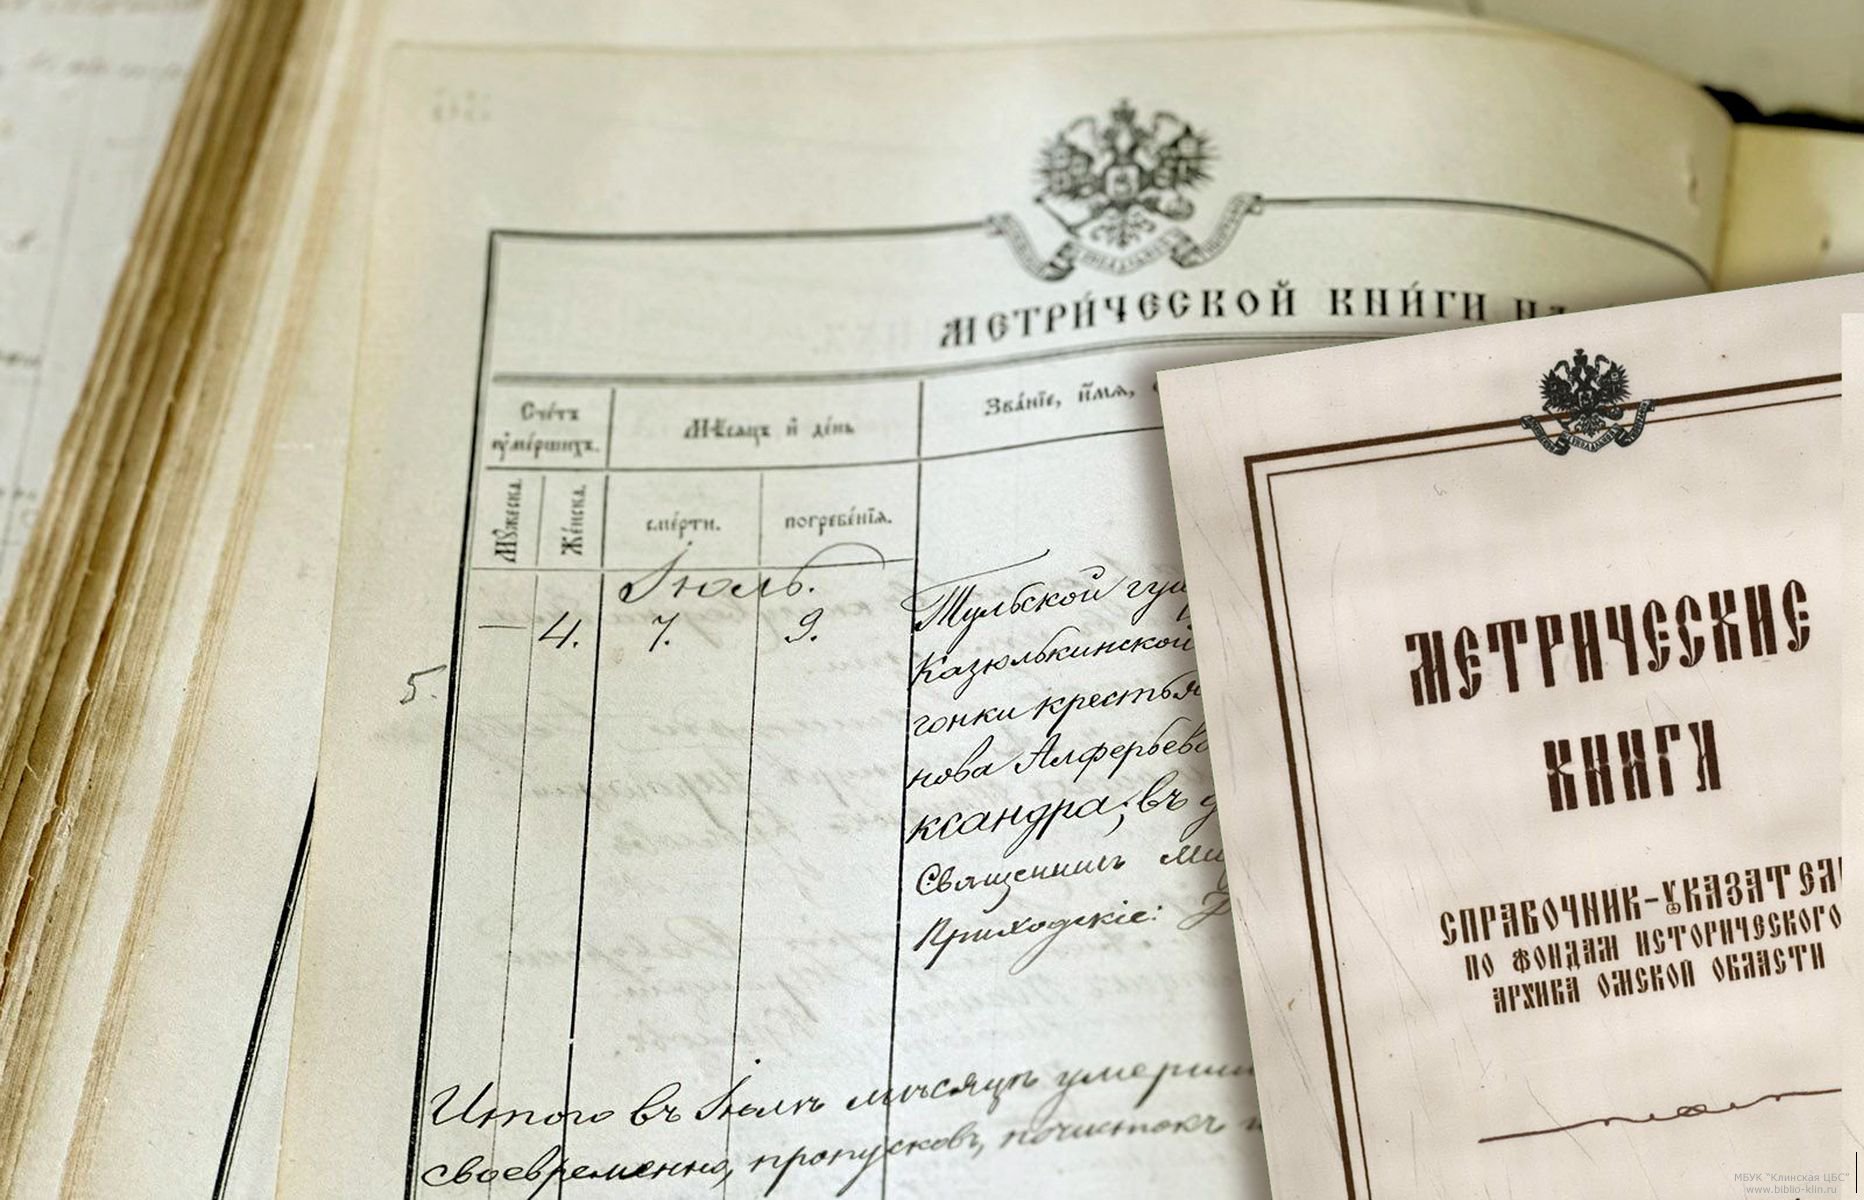 МЕТРИ́ЧЕСКОЙ КНИ́ГИ НА
Сче́тъ
ᲂу҆ме́ршихъ.
Мѣсяцъ и҆ де́нь
Зва́нїе, и҆́мя,
Мꙋ́жеска.
Же́нска.
сме́рти.
погребе́нїя.
Іюль.
— 4. 7. 9.
5.
Тульской
Казюлькинской
гонки
нова Алферьев
ксандра; въ
Священникъ
Приходскіе:
Итого въ Іюлѣ мѣсяцѣ умерш
своевременно, пропусковъ, почистокъ
МЕТРИЧЕСКИЕ
КНИГИ
СПРАВОЧНИК-УКАЗАТЕЛ
ПО ФОНДАМ ИСТОРИЧЕСКОГО
АРХИВА ОМСКОЙ ОБЛАСТИ
МБУК "Клинская ЦБС"
www.biblio-klin.ru